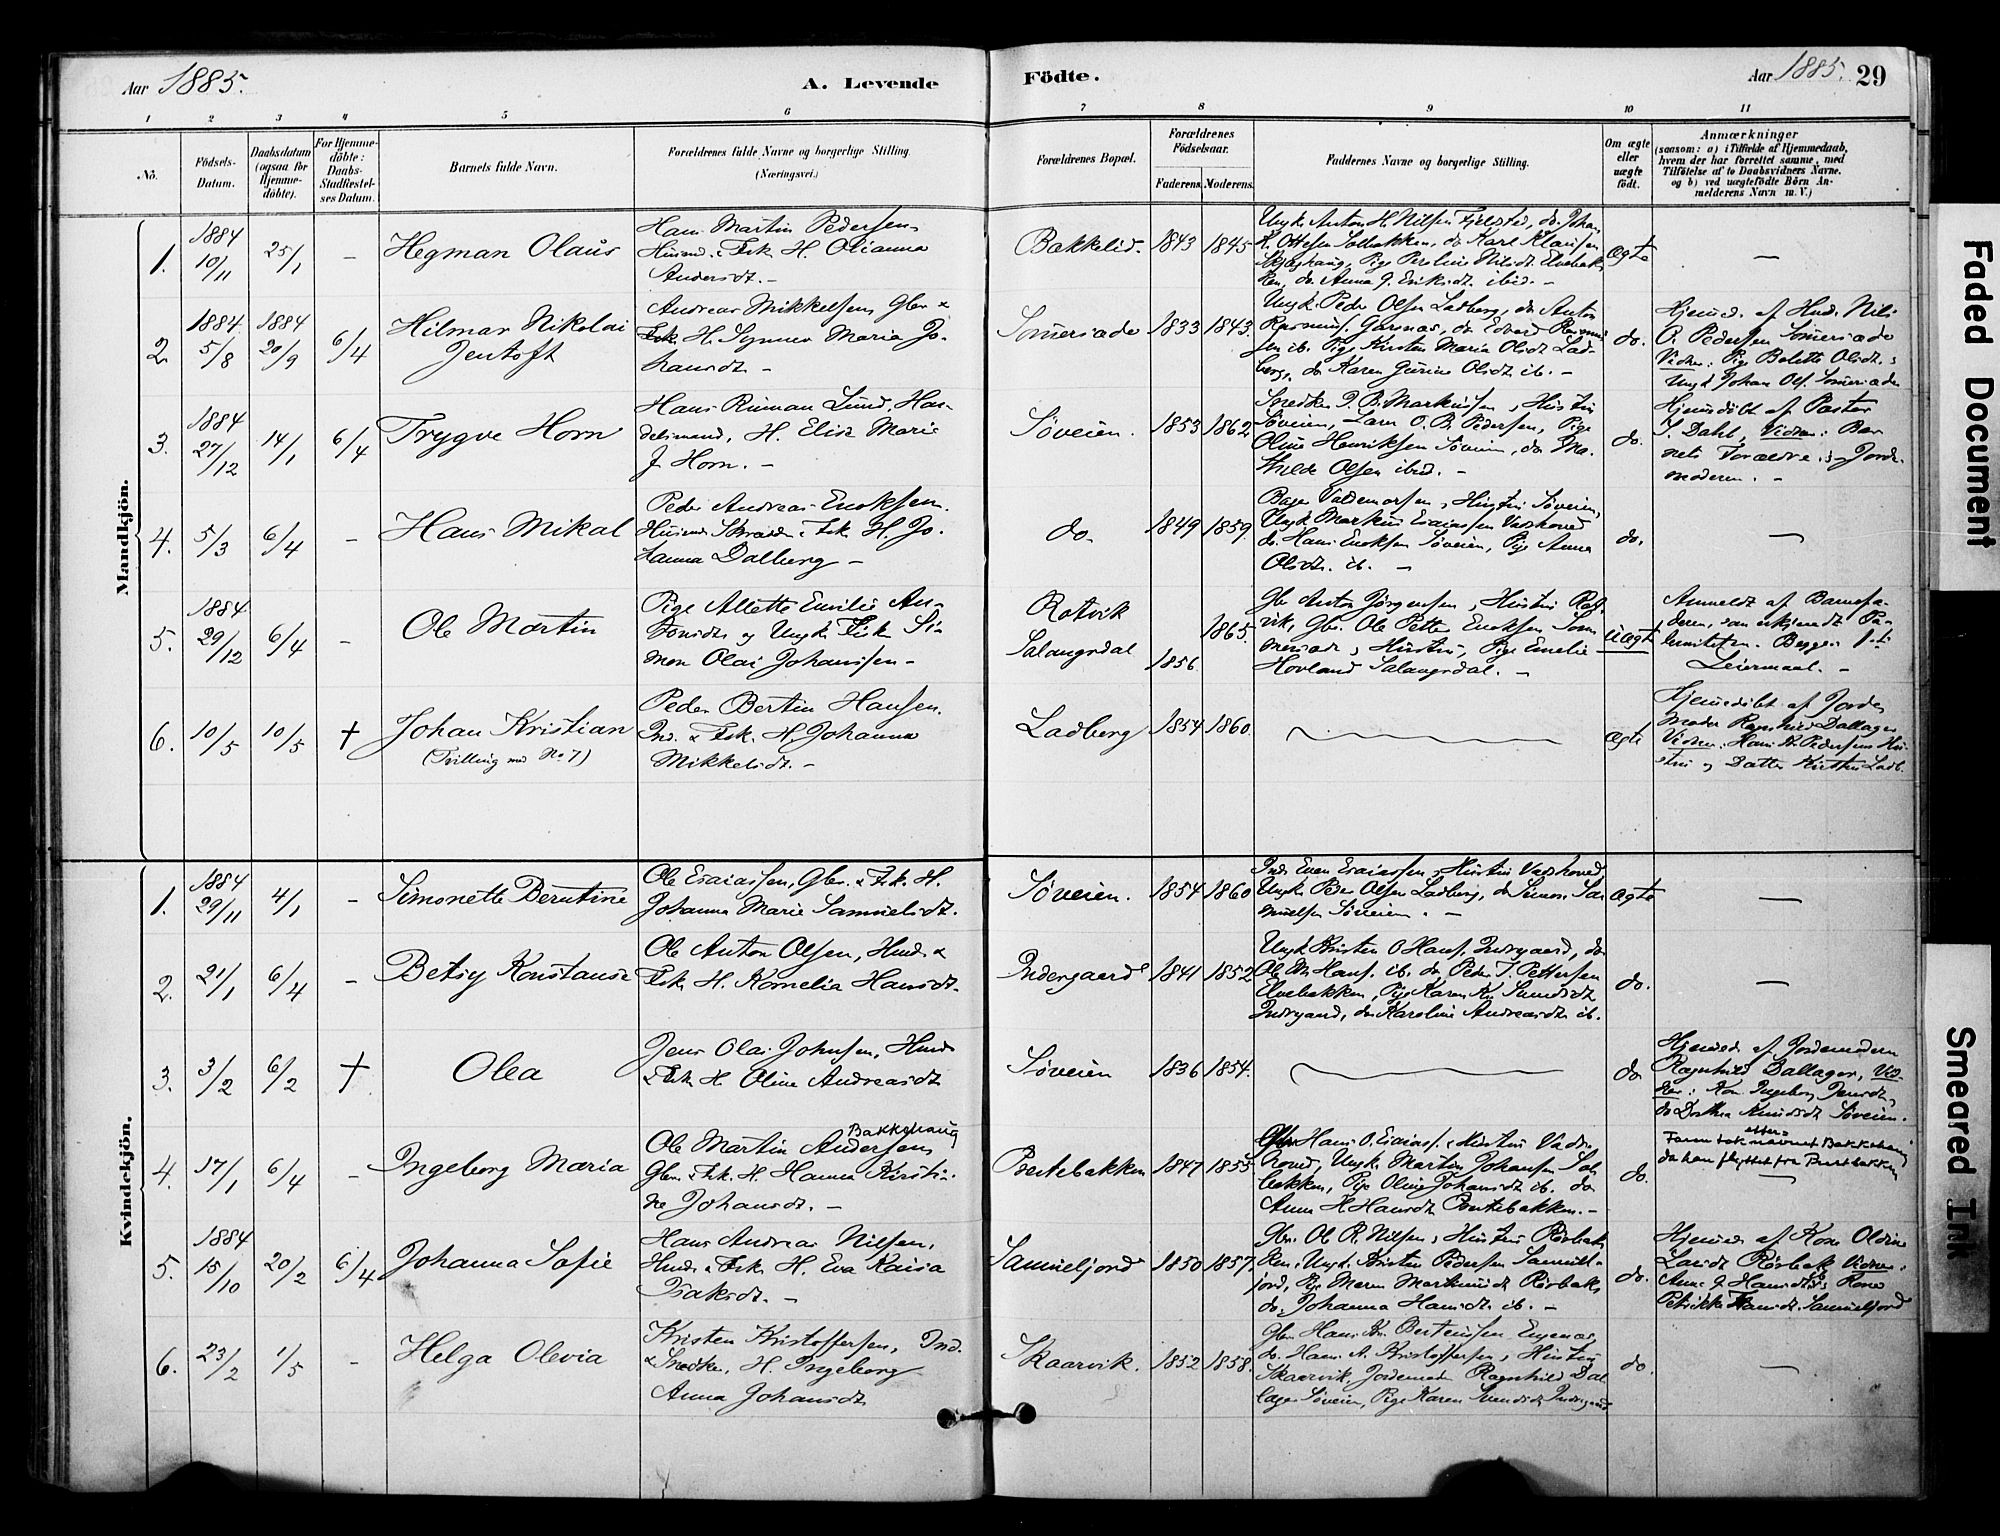 Aar 1885.
A. Levende
Födte.
Aar 1885.
29
1 2 3 4 5 6 7 8 9 10 11
No.
Födsels-
Datum.
Daabsdatum
(ogsaa for
Hjemme-
döbte).
For Hjemme-
döbte:
Daabs-
Stadfæstel-
ses Datum.
Barnets fulde Navn.
Forældrenes fulde Navne og borgerlige Stilling
(Næringsvei.)
Forældrenes Bopæl.
Forældrenes
Födselsaar.
Faderens. Moderens.
Faddernes Navne og borgerlige Stilling.
Om ægte
eller
uægte
födt.
Anmærkninger
(saasom: a) i Tilfælde af Hjemmedaab,
hvem der har forrettet samme, med
Tilföielse af to Daabsvidners Navne.
og b) ved uægtefödte Börn An-
melderens Navn m. V.)
Mandkjön.
1.
1884
10/11
25/1
-
Hegman Olaus
Hans Martin Pedersen
Husmd. & Fisk. H. Olianna
Andersdt. -
Bakkelid.
1843
1845
Ungk. Anton H. Nilsen Fjelstad, do Johan
Ottesen Solbakken, do Karl Klausen
Pige
do Anna J. Eriksdt. ibid. -
ægte
-
2.
1884
5/8
1884
20/9
6/4
Hilmar Nikolai
Jentoft
Andreas Mikkelsen, Gbr. &
Fisk. H. Synnøv Maria Jo-
hansdt. -
1833
1843.
Ungk. Peder Olsen Ladberg, do Anton
do Edvard
sen ib. Pige Kirsten Maria Olsdt Lad-
berg, do Karen Olsdt. ib. -
do.
Hjemmed. af Husmd. Nils
O. Pedersen
Vidner: Pige Bolette Olsdt. &
Ungk. Johan Ols.
3.
1884
27/12
14/1
6/4
Trygve Horn
Hans Lund, Han-
delsmand, H. Elise Marie
J. Horn. -
Søveien.
1853
1862
Snedker P. B. Markussen & Hustru
Søveien, Lars O. B. Pedersen, Pige
Oline Henriksen Søveien, do Ma-
thilde Olsen ibid. -
do.
Hjemdöbt af Pastor
J. Dahl, Vidner: Bar-
nets Forældre & Jorde-
moderen. -
4.
5/3
6/4
-
Hans Mikal
Peder Andreas Enoksen.
Husmd. & Fisk. H. Jo-
hanna Dalberg -
do
1849
1859.
Bager Valdemarsen & Hustru Søveien,
Ungk. Markus Esaiassen
do. Hans Enoksen Søveien, Pige Anna
Olsdt. ib. -
do.
-
5.
1884
29/12
6/4
-
Ole Martin
Pige Allette Emilie An-
tonsdt. og Ungk. Fisk. Si-
mon Olai Johanssen -
Rotvik
Salangsdal
1856
1865.
Gbr. Anton Jörgensen & Hustru Rot-
vik, Gbr. Ole Petter Enoksen Som-
& Hustru, Pige Emelie
Hovland Salangsdal. -
uægte
Anmeldt af Barnefa-
deren, som erkjendt Pa-
terniteten. Begges 1ste
Leiermaal. -
6.
10/5
10/5
+
Johan Kristian
(Tvilling med No. 7)
Peder Bertin Hansen.
Ind. & Fisk. H. Johanna
Mikkelsdt. -
Ladberg
1854
1860.
ægte
Hjemmedöbt af Jorde-
moder Ragnhild Dallager
Vidner: Hans Pedersens Hu-
stru og Datter Kirsten Ladb.
Kvindekjön.
1.
1884
29/11
4/1
-
Simonette Berntine
Ole Esaiassen, Gbr. & Fisk. H.
Johanna Marie Samuelsdt.
Søveien.
1854
1860
Ind. Even Esaiassen & Hustru
Ungk. Peder Olsen Ladberg, do Simon Sa-
muelsen Søveien. -
ægte
-
2.
21/1
6/4
-
Betsy Konstanse
Ole Anton Olsen, Husmd. &
Fisk. H. Kornelia Hansdt.
Indergaard
1841
1852
Ungk. Kristen O Hans. Indrgaard, do
Ole M. Hans. ib. do Peder J. Pettersen
Elvebakken, Pige Karen Kr.
Indrgaard, do Karoline Andreasdt. ib.
do.
-
3.
3/2
6/2
+
Olea
Jens Olai Johnsen, Husmd.
& Fisk. H. Oline Andreasdt.
Søveien
1836
1854.
do
Hjemmed. af Jordemodern
Ragnhild Dallager, Vid-
ner: Kone Ingeborg Jensdt.
do Dorthea Knudsdt. Søveien.
4.
17/1
6/4
-
Ingeborg Maria
Ole Martin Andersen Bakkehaug
Gbr. & Fisk. H. Hanna Kristi-
ne Johansdt. -
Brustebakken
1847
1855
Gbr. Hans O. Esaiass. & Hustru
Ungk. Martin Johansen Sol-
bakken, Pige Oline Johansdt. ib. do
Anna H Hansdt. -
do.
Faren tok navnet Bakkehaug etter
da han flyttet fra Brustbakken
-
5.
1884
15/10
20/2
6/4
Johanna Sofie
Hans Andreas Nilsen,
Husmd. & Fisk. H. Eva Kaisa
Isaksdt. -
Samuelfjord
1850
1857.
Gbr. Ole R. Nilsen & Hustru Rörbak-
ken, Ungk. Kristen Pedersen Samuel-
fjord, Pige Maren Markusdt Rörbak
do. Johanna Hansdt. ib. -
do.
Hjemmed. af Kone Oldine
Larsdt. Rörbak Vidner.
Anne J. Hansdt. & Kone
Petrikke Hansdt. Samuelfjord
6.
23/2
1/5
-
Helga Olevia
Kristen Kristoffersen, Ind.
& Snedker, H. Ingeborg
Anna Johansdt.
Skaarvik.
1852
1858.
Gbr. Hans Kr. Berteussen
do. Hans A. Kristoffersen & Hustru
Skaarvik, Jordemoder Ragnhild Dal-
lager Søveien, Pige Karen
do.
-
Faded Document
Smeared Ink